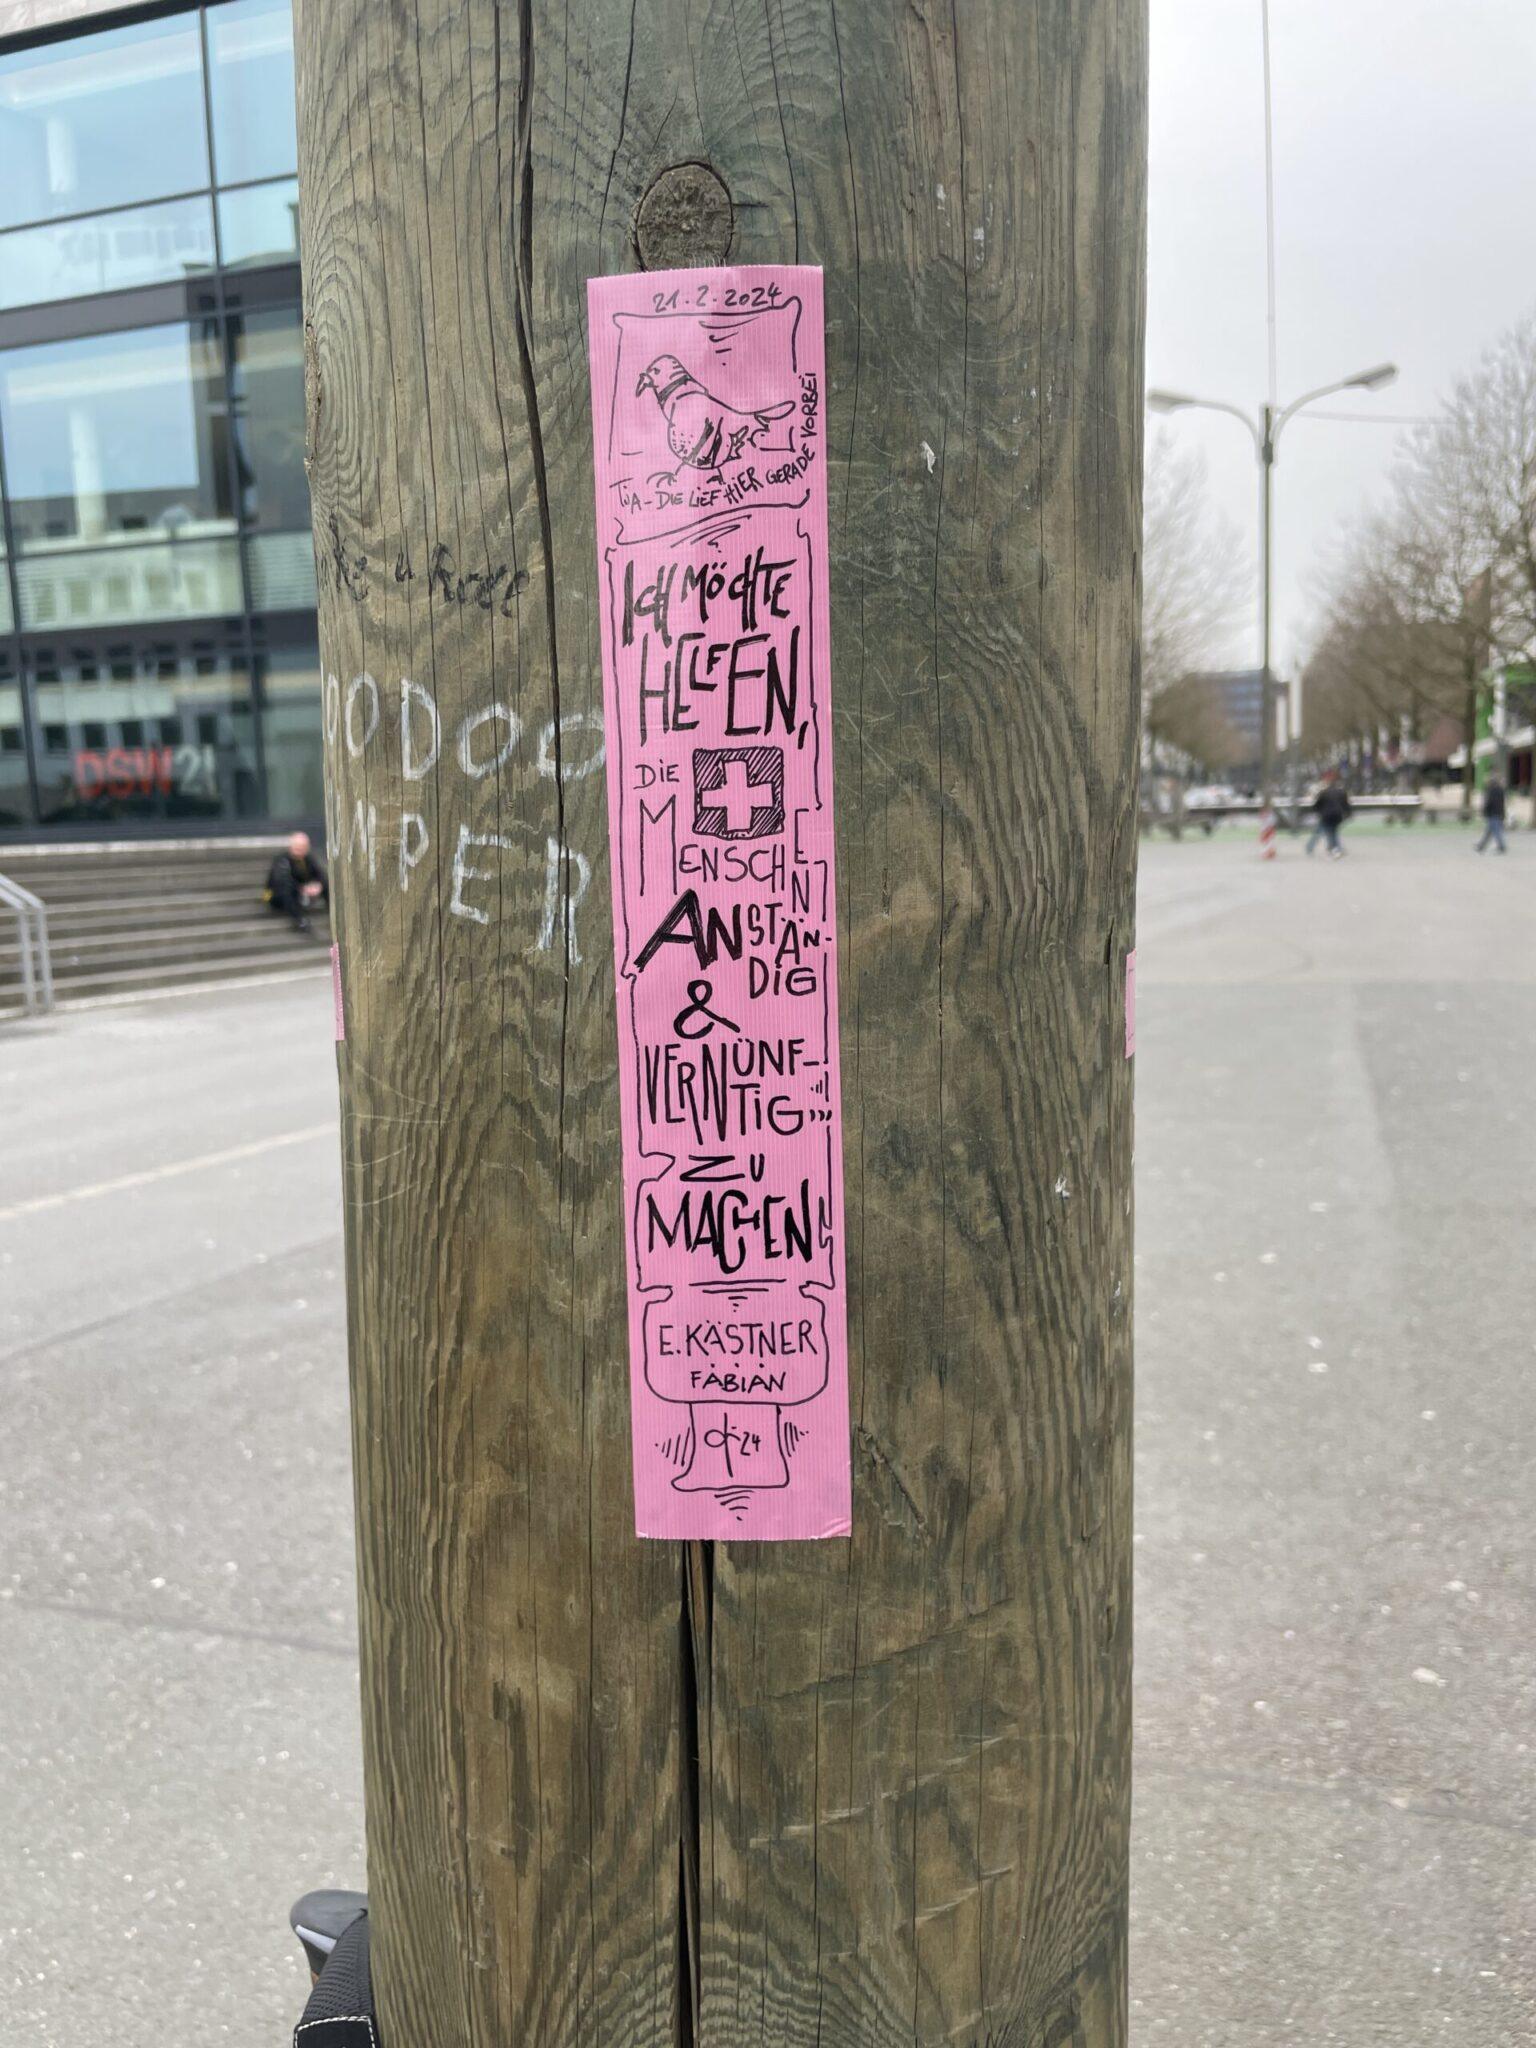 21.2.2024
TJA - DIE LIEF HIER GERADE VORBEI
ICH MÖCHTE
HELFEN,
DIE
MENSCHEN
ANSTÄN-
DIG
&
VERNÜNF-
TIG...
ZU
MACHEN
E. KÄSTNER
FABIAN
24
OODOO
MPER
DSW21